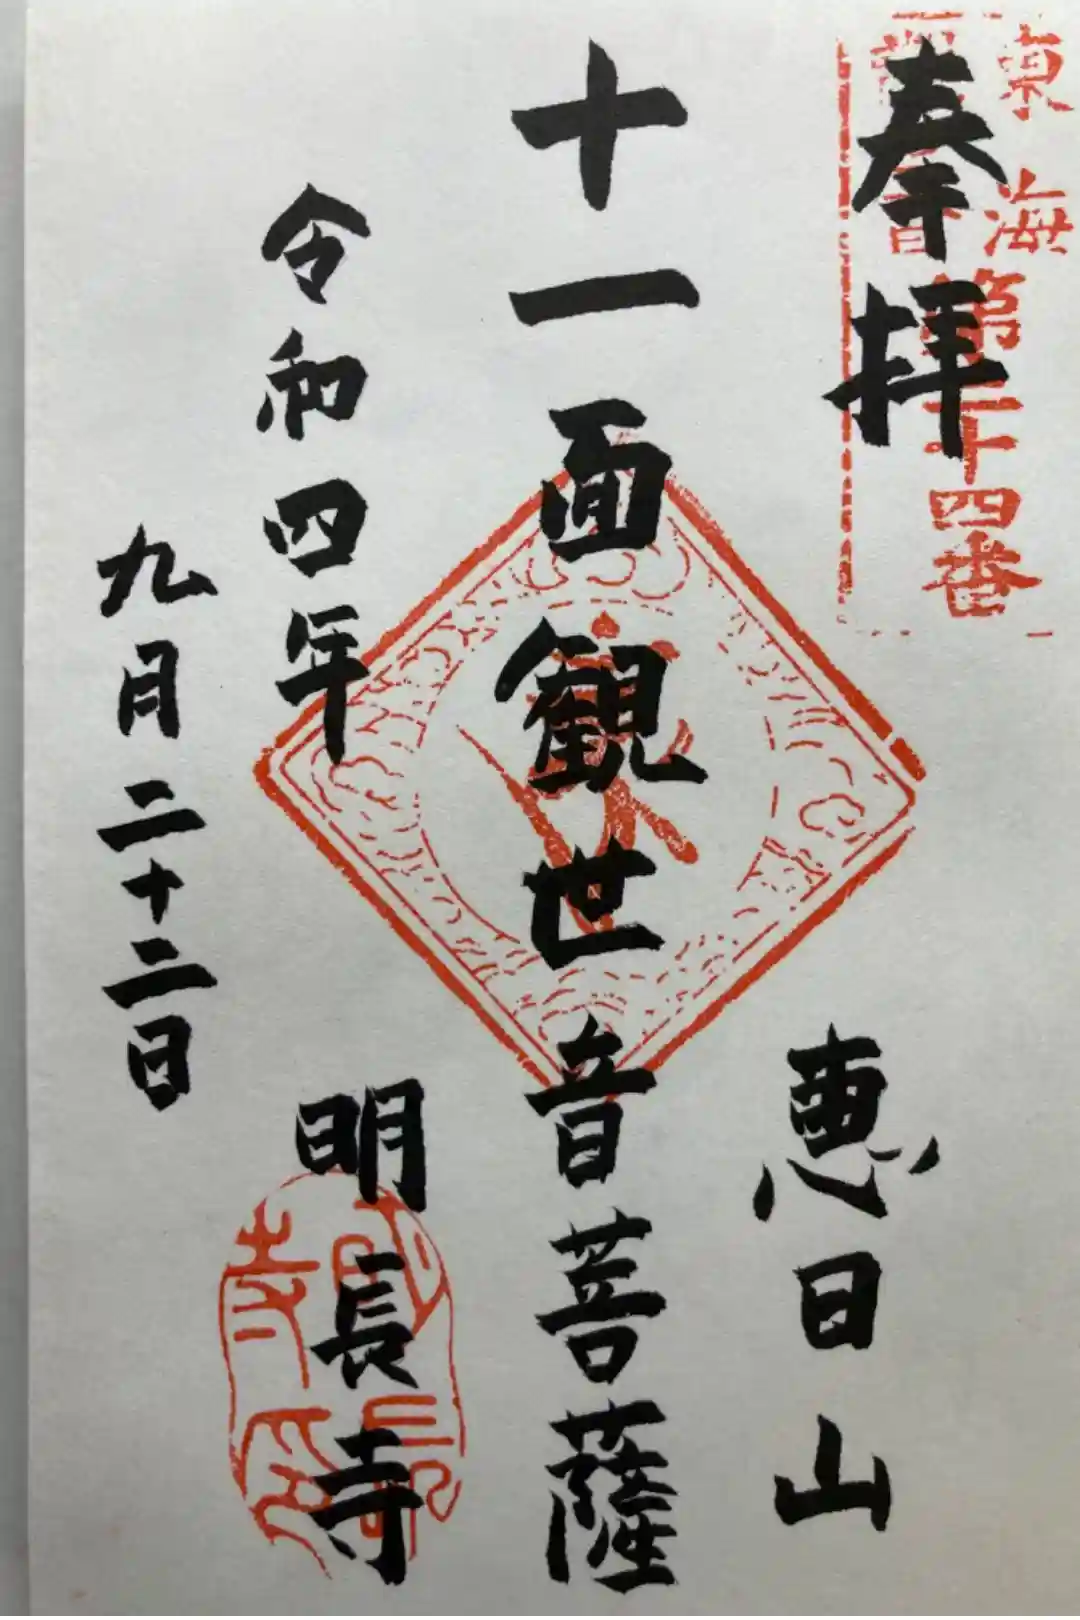 東海
第二十四番
奉拝
恵日山
十一面観世音菩薩
令和四年
九月二十二日
明長寺